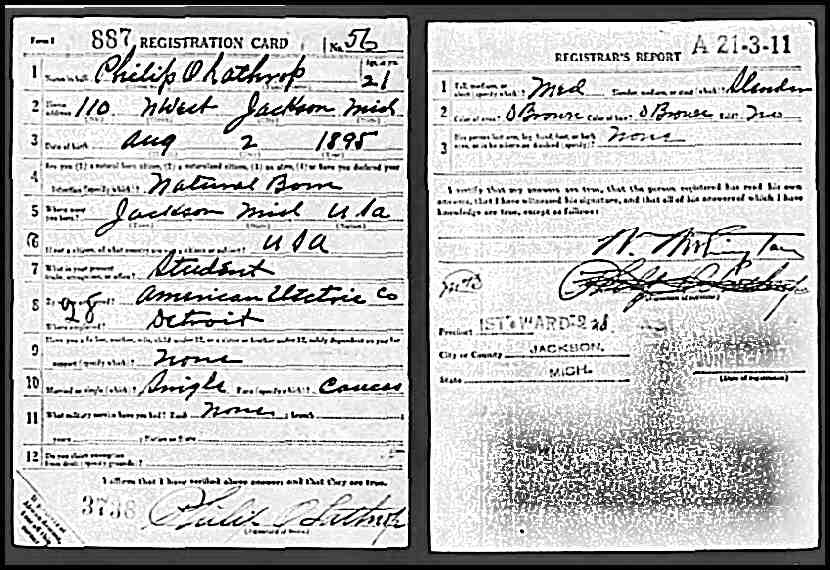 Form 1 887 REGISTRATION CARD No. 56
1 Name in full Philip O Lathrop Age, in yrs. 21
2 Home address 110 N West Jackson Mich
3 Date of birth Aug 2 1895
4 Are you (1) a natural born citizen, (2) a naturalized citizen, (3) an alien, (4) or have you declared your
intention (specify which)? Natural Born
5 Where were you born? Jackson Mich USA
6 If not a citizen, of what country are you a citizen or subject? USA
7 What is your present trade, occupation, or office? Student
8 28 By whom employed? American Co
Where employed? Detroit
9 Have you a father, mother, wife, child under 12, or a sister or brother under 12, solely dependent on you for
support (specify which)? None
10 Married or single (which)? Single Race (specify which)? Caucas
11 What military service have you had? Rank None branch
years Nation or State
12 Do you claim exemption from draft (specify grounds)?
I affirm that I have verified above answers and that they are true.
3738 Philip O Lathrop
REGISTRAR'S REPORT A 21-3-11
1 Tall, medium, or short (specify which)? Med Slender, medium, or stout (which)? Slender
2 Color of eyes? Brown Color of hair? Brown Bald? No
3 Has person lost arm, leg, hand, foot, or both eyes, or is he otherwise disabled (specify)? None
I certify that my answers are true, that the person registered has read his own
answers, that I have witnessed his signature, and that all of his answers of which I have
knowledge are true, except as follows:
(Signature of registrar)
Precinct 1ST WARD-2d
City or County JACKSON.
State MICH.
(Date of registration)